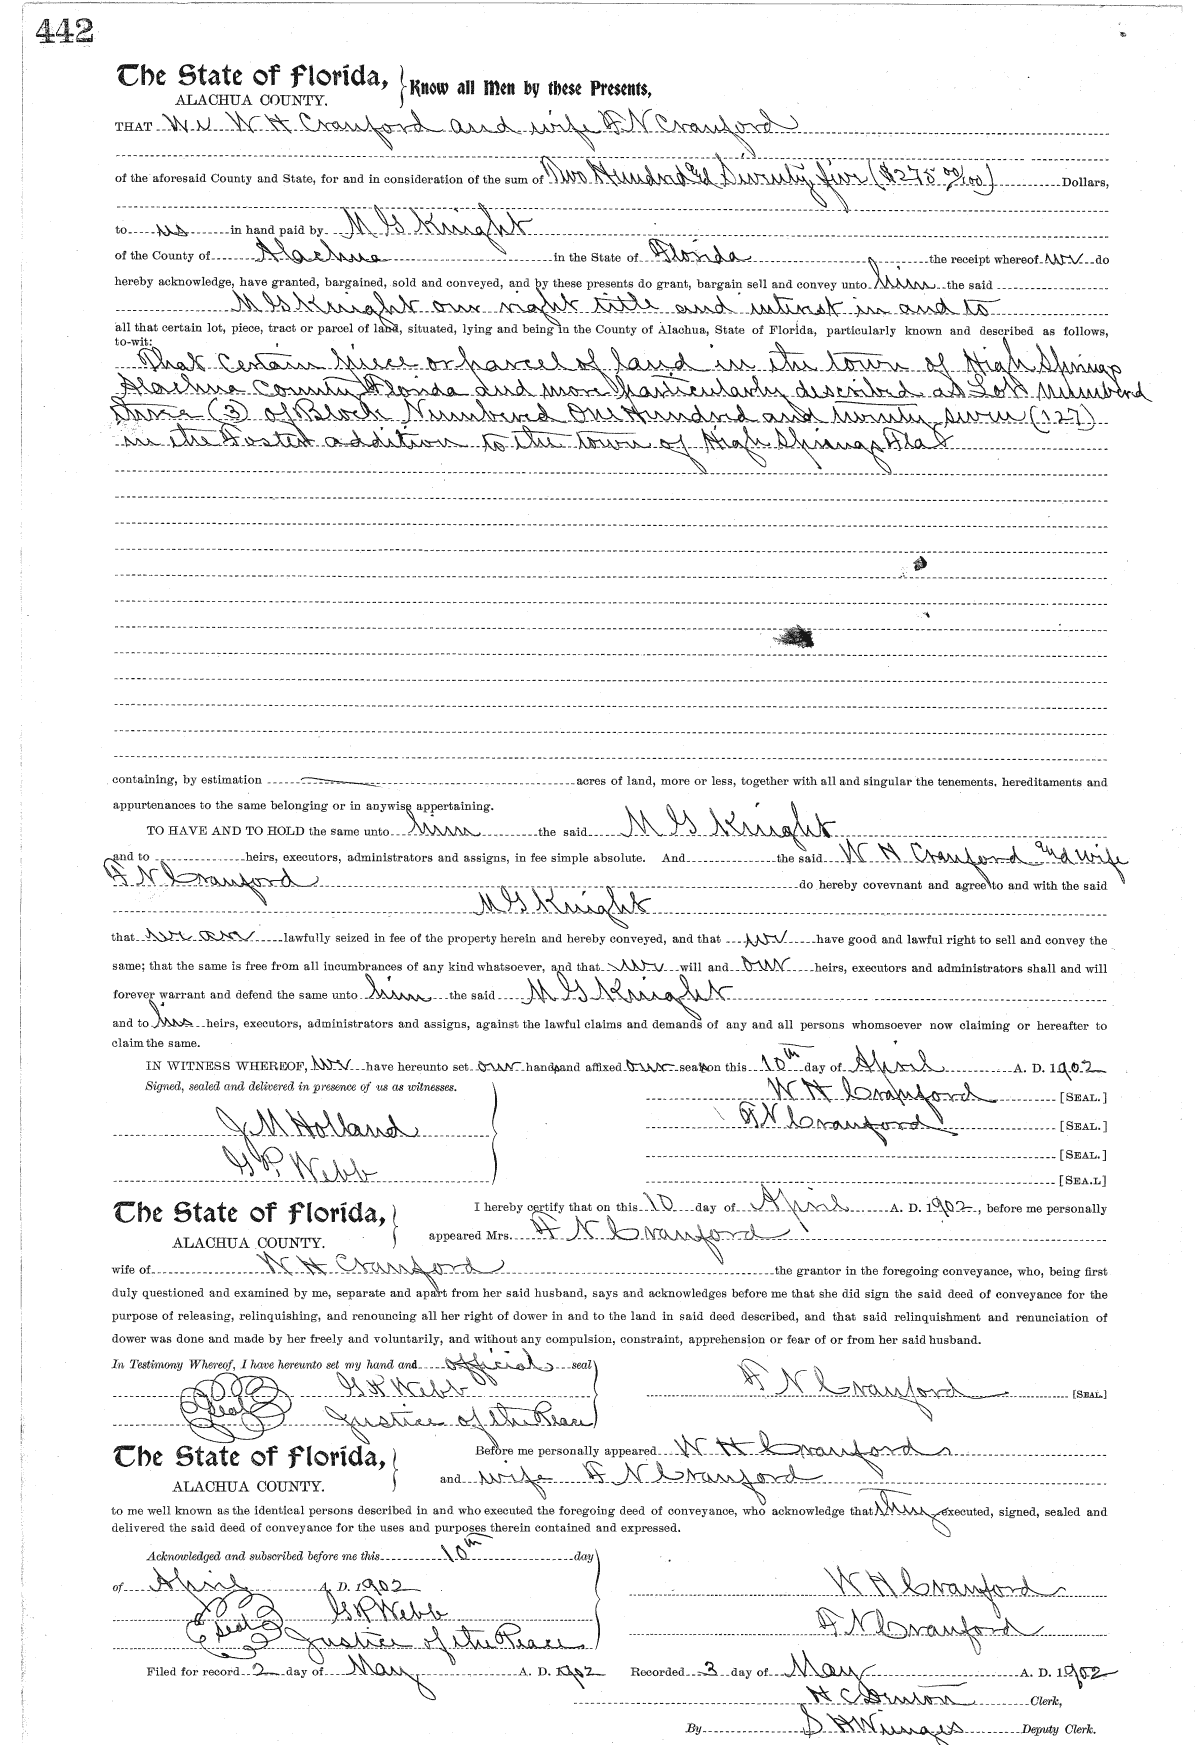 442
The State of Florida, Know all Men by these Presents,
ALACHUA COUNTY.
THAT We W H Cranford and wife F N Cranford
of the aforesaid County and State, for and in consideration of the sum of Two Hundred & Seventy five ($275 00/100) Dollars,
to us in hand paid by M G Knight
of the County of Alachua in the State of Florida the receipt whereof we do
hereby acknowledge, have granted, bargained, sold and conveyed, and by these presents do grant, bargain sell and convey unto him the said
M G Knight our right title and interest in and to
all that certain lot, piece, tract or parcel of land, situated, lying and being in the County of Alachua, State of Florida, particularly known and described as follows,
to-wit:
That certain piece or parcel of land in the town of High Springs
Alachua County Florida and more particularly described as Lot Numbered
Three (3) of Block Numbered One Hundred and twenty seven (127)
in the Foster addition to the town of High Springs Fla
containing, by estimation acres of land, more or less, together with all and singular the tenements, hereditaments and
appurtenances to the same belonging or in anywise appertaining.
TO HAVE AND TO HOLD the same unto him the said M G Knight
and to heirs, executors, administrators and assigns, in fee simple absolute. And the said W H Cranford and wife
F N Cranford do hereby covevnant and agree to and with the said
M G Knight
that we are lawfully seized in fee of the property herein and hereby conveyed, and that we have good and lawful right to sell and convey the
same; that the same is free from all incumbrances of any kind whatsoever, and that we will and our heirs, executors and administrators shall and will
forever warrant and defend the same unto him the said M G Knight
and to his heirs, executors, administrators and assigns, against the lawful claims and demands of any and all persons whomsoever now claiming or hereafter to
claim the same.
IN WITNESS WHEREOF, we have hereunto set our hands and affixed our seals on this 10th day of April A. D. 1902
Signed, sealed and delivered in presence of us as witnesses. W H Cranford [SEAL.]
J M Holland F N Cranford [SEAL.]
[SEAL.]
G P Webb [SEA.L]
The State of Florida, I hereby certify that on this 10 day of April A. D. 1902, before me personally
ALACHUA COUNTY. appeared Mrs. F N Cranford
wife of W H Cranford the grantor in the foregoing conveyance, who, being first
duly questioned and examined by me, separate and apart from her said husband, says and acknowledges before me that she did sign the said deed of conveyance for the
purpose of releasing, relinquishing, and renouncing all her right of dower in and to the land in said deed described, and that said relinquishment and renunciation of
dower was done and made by her freely and voluntarily, and without any compulsion, constraint, apprehension or fear of or from her said husband.
In Testimony Whereof, I have hereunto set my hand and official seal
G P Webb F N Cranford [SEAL]
Seal Justice of the Peace
The State of Florida, Before me personally appeared W H Cranford
ALACHUA COUNTY. and wife F N Cranford
to me well known as the identical persons described in and who executed the foregoing deed of conveyance, who acknowledge that they executed, signed, sealed and
delivered the said deed of conveyance for the uses and purposes therein contained and expressed.
Acknowledged and subscribed before me this 10th day
of April A. D. 1902 W H Cranford
G P Webb F N Cranford
Seal Justice of the Peace
Filed for record 2 day of May A. D. 1902 Recorded 3 day of May A. D. 1902
H C Denton Clerk,
By S H Wienges Deputy Clerk.